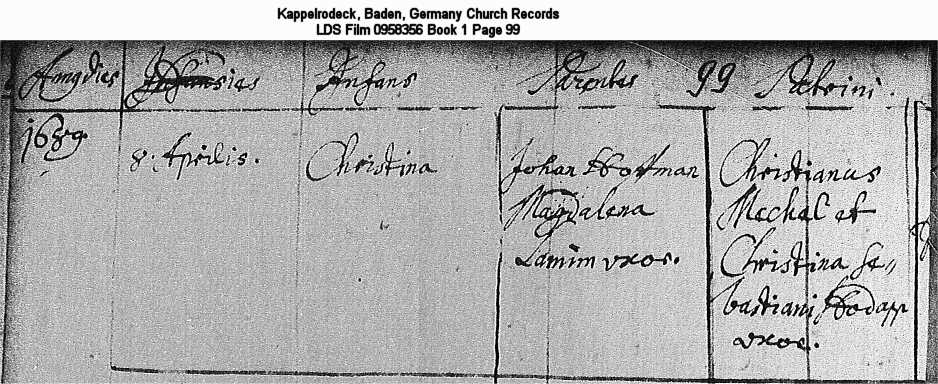 Kappelrodeck, Baden, Germany Church Records
LDS Film 0958356 Book 1 Page 99
Infans Parentes 99 Patrini.
1689
8. Aprilis. Christina
Johan
Magdalena
uxor.
Christianus
Mechel et
Christina Se„
bastiani Bodapp
uxor.